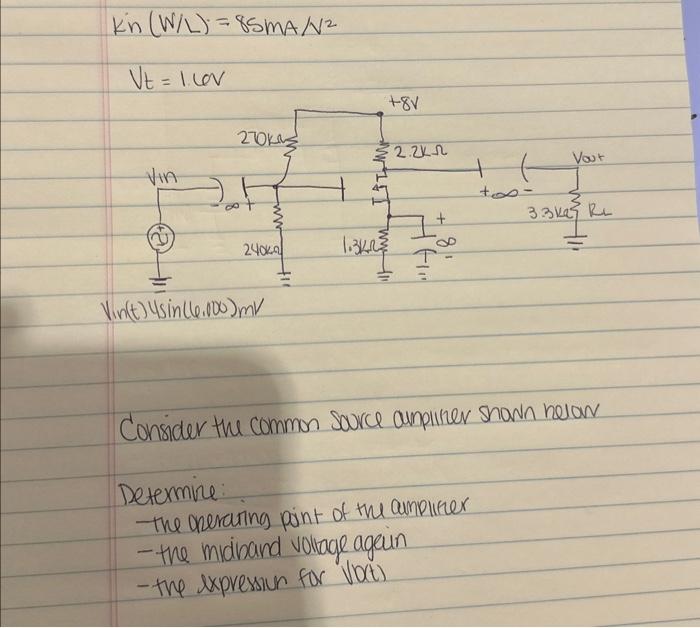 k'n (W/L) = 85mA/V²
Vt = 1.60V
+8V
270kΩ
2.2kΩ
Vout
Vin
∞ +
+ ∞ -
3.3kΩ RL
240kΩ
1.3kΩ
+
∞
-
Vin(t) 4sin(6,000)mV
Consider the common source amplifier shown below
Determine:
- the operating point of the amplifier
- the midband voltage again
- the expression for Vo(t)